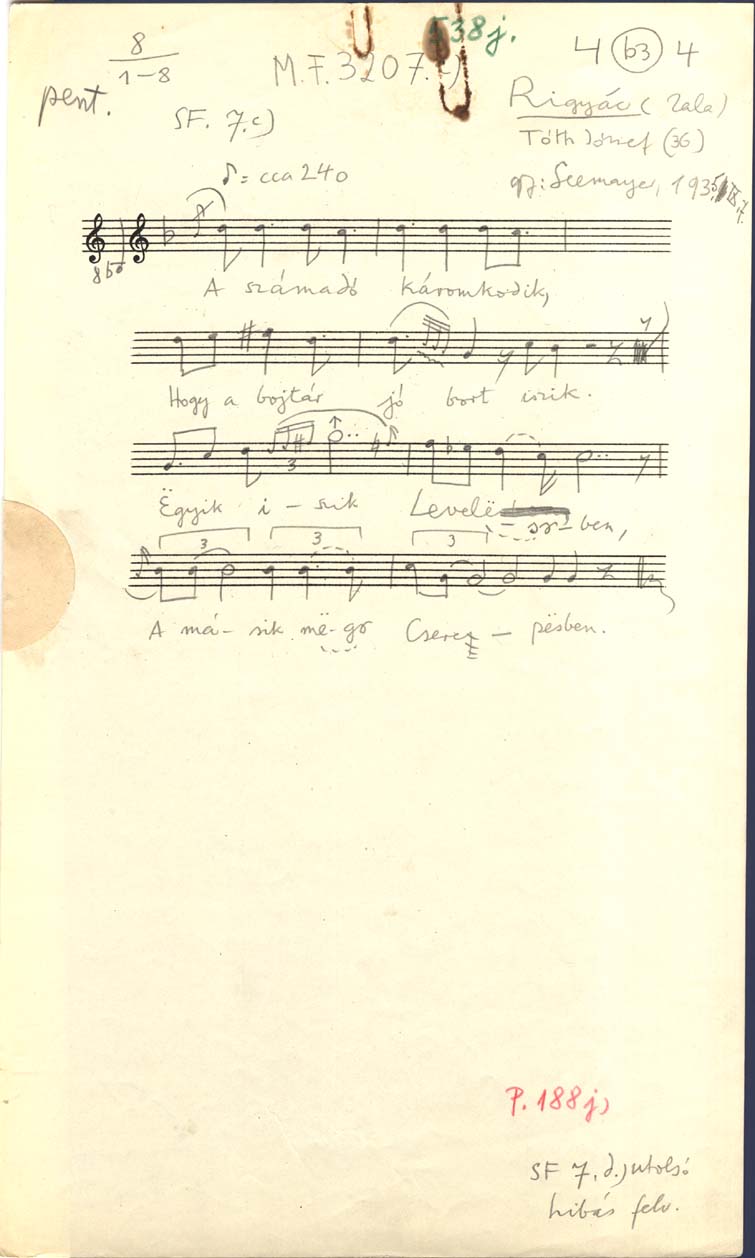 8
1-8
pent.
M.F. 3207.c)
538j.
4 (b3) 4
SF. 7.c)
Rigyác (Zala)
Tóth József (36)
gy: Seemayer, 1935
♪ = cca 240
8 bó
A számadó káromkodik,
Hogy a bojtár jó bort iszik.
3
Ëgyik i - szik Levelë
- ben,
3 3 3
A má- sik më-gy Csere - pësben.
P. 188j)
SF 7. d.) utolsó
hibás felv.